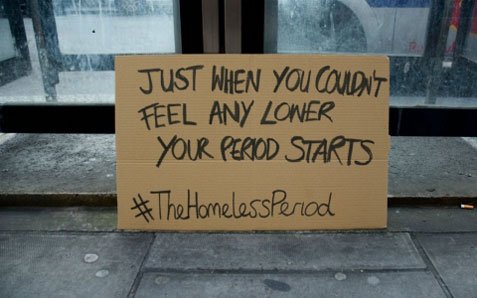 JUST WHEN YOU COULDN'T
FEEL ANY LOWER
YOUR PERIOD STARTS
#TheHomelessPeriod